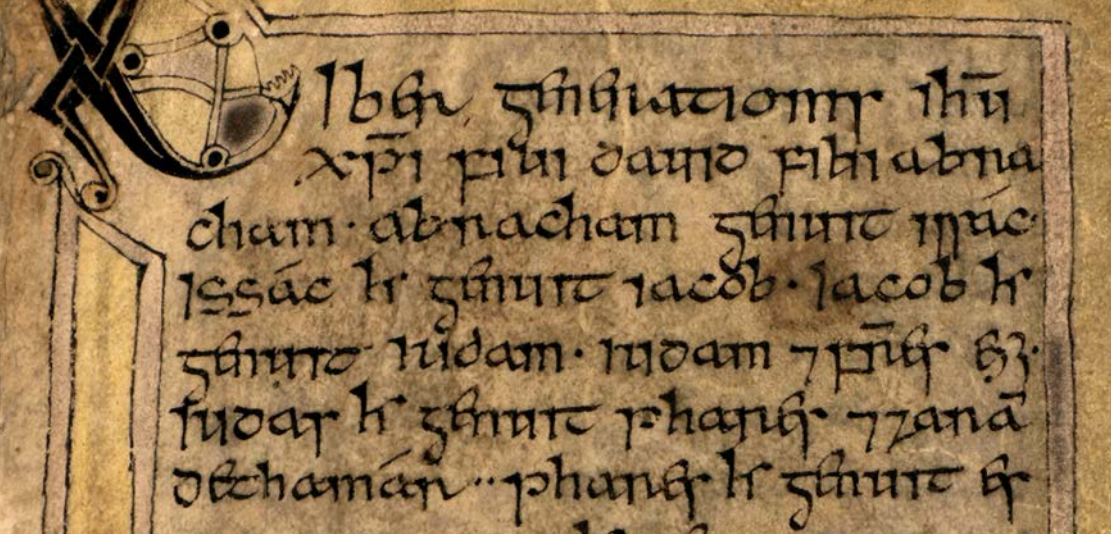 Liber generationis ihū
xp̄i filii dauid filii abra
cham · abracham genuit issác·
issác h' genuit iacob · iacob h'
genuit iudam · iudam ⁊ fr̄es eꝫ·
iudas h' genuit phares ⁊ zarā
de thamár ·· phares h' genuit es